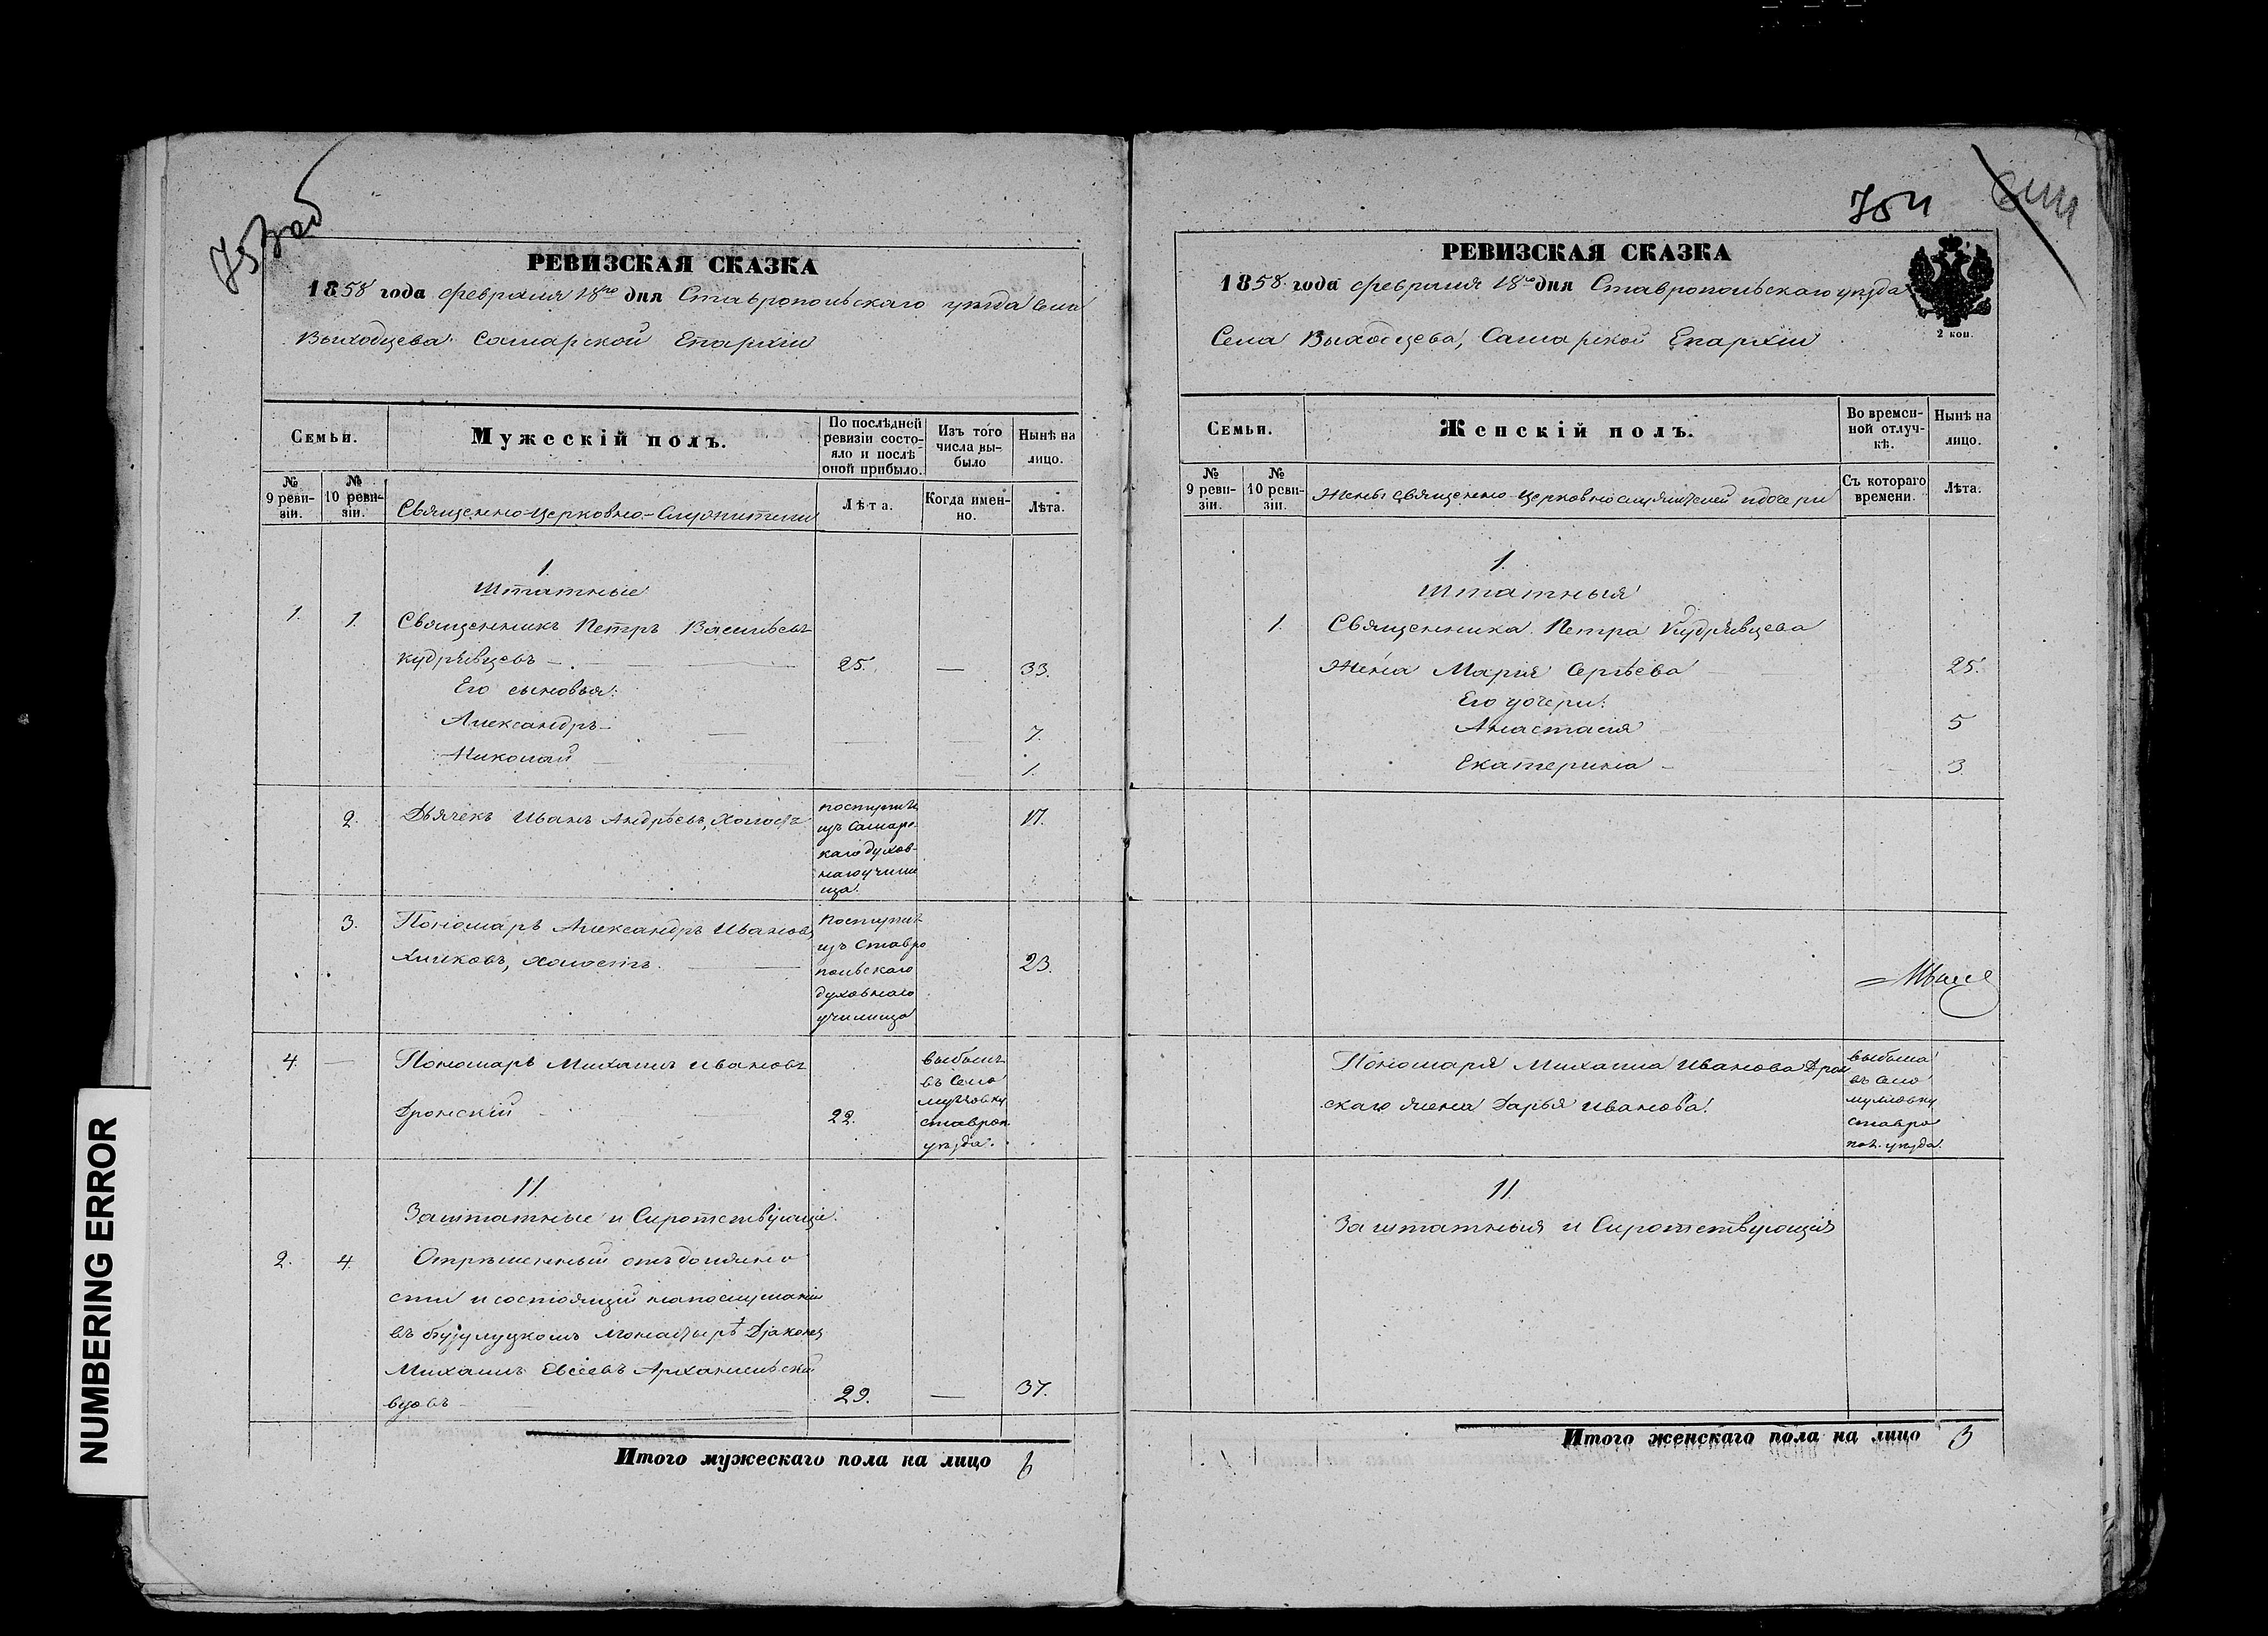 NUMBERING ERROR
РЕВИЗСКАЯ СКАЗКА
1858 года февраля 18го дня Ставропольскаго уѣзда Села
Выходцева Самарской Епархіи
Семьи.
Мужескій полъ.
По послѣдней
ревизіи состо-
яло и послѣ
оной прибыло.
Изъ того
числа вы-
было
Нынѣ на
лицо.
№
9 реви-
зіи.
№
10 реви-
зіи.
Священно-Церковно-Служители
Лѣта.
Когда имен-
но.
Лѣта.
1.
Штатные
1. 1. Священникъ Петръ Васильевъ
Кудрявцевъ 25. — 33.
Его сыновья:
Александръ 7.
Николай 1.
2. Дьячекъ Иванъ Андрѣевъ, холостъ 17.
поступилъ
изъ Самарс-
каго духов-
наго учили
ща.
3. Пономарь Александръ Ивановъ
холостъ. 23.
Поступилъ
изъ Ставро
польскаго
духовнаго
училища
4. — Пономарь Михаилъ Ивановъ
Дронскій 22.
выбылъ
въ Село
ставроп.
уѣзда.
II.
Заштатные и Сиротствующіе.
2. 4. Отрѣшенный отъ должно
сти и состоящій на послушаніи
въ бузулуцкомъ Монастырѣ Діаконъ
Михаилъ Евсеевъ Архангельскій
вдовъ 29. — 37.
Итого мужескаго пола на лицо 6
754
РЕВИЗСКАЯ СКАЗКА
1858 года февраля 18го дня Ставропольскаго уѣзда
Села Выходцева, Самарской Епархіи
2 коп.
Семьи.
Женскій полъ.
Во времен-
ной отлуч-
кѣ.
Нынѣ на
лицо.
№
9 реви-
зіи.
№
10 реви-
зіи.
Жены священно-церковнослужителей и дочери
Съ котораго
времени.
Лѣта.
1.
Штатныя
1. Священника Петра Кудрявцева
Жена Марія Сергѣева 25.
Его дочери:
Анастасія 5
Екатерина 3.
Пономаря Михаила Иванова Дрон
скаго жена Дарья Иванова.
выбыла
въ село
ставро
пол. уѣзда.
II.
Заштатныя и Сиротствующія
Итого женскаго пола на лицо 3